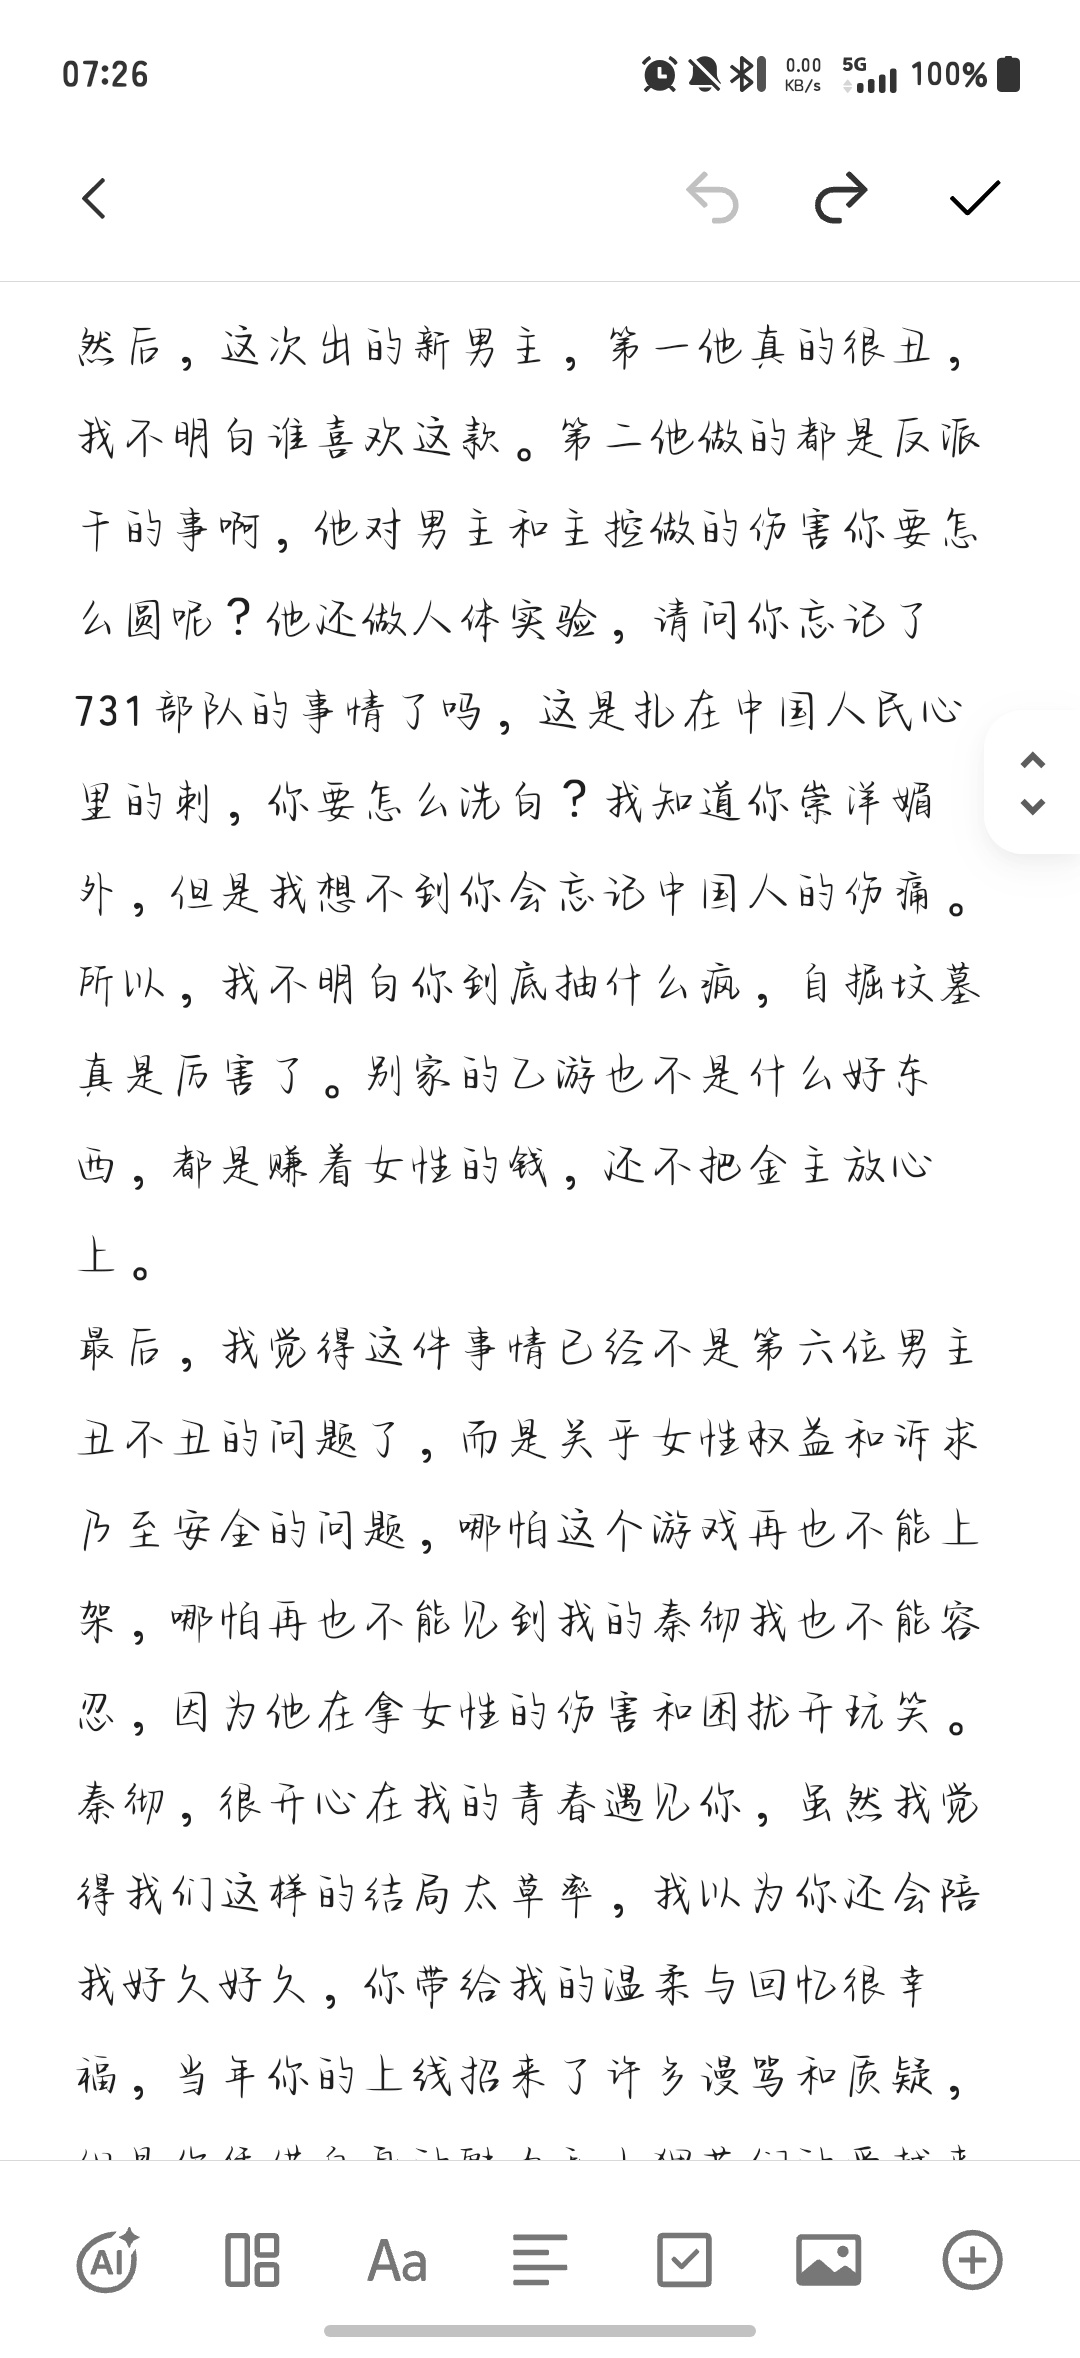 07:26
0.00 KB/s 5G 100%
然后，这次出的新男主，第一他真的很丑，
我不明白谁喜欢这款。第二他做的都是反派
干的事啊，他对男主和主控做的伤害你要怎
么圆呢？他还做人体实验，请问你忘记了
731部队的事情了吗，这是扎在中国人民心
里的刺，你要怎么洗白？我知道你崇洋媚
外，但是我想不到你会忘记中国人的伤痛。
所以，我不明白你到底抽什么疯，自掘坟墓
真是厉害了。别家的乙游也不是什么好东
西，都是赚着女性的钱，还不把金主放心
上。
最后，我觉得这件事情已经不是第六位男主
丑不丑的问题了，而是关乎女性权益和诉求
乃至安全的问题，哪怕这个游戏再也不能上
架，哪怕再也不能见到我的秦彻我也不能容
忍，因为他在拿女性的伤害和困扰开玩笑。
秦彻，很开心在我的青春遇见你，虽然我觉
得我们这样的结局太草率，我以为你还会陪
我好久好久，你带给我的温柔与回忆很幸
福，当年你的上线招来了许多谩骂和质疑，
AI Aa